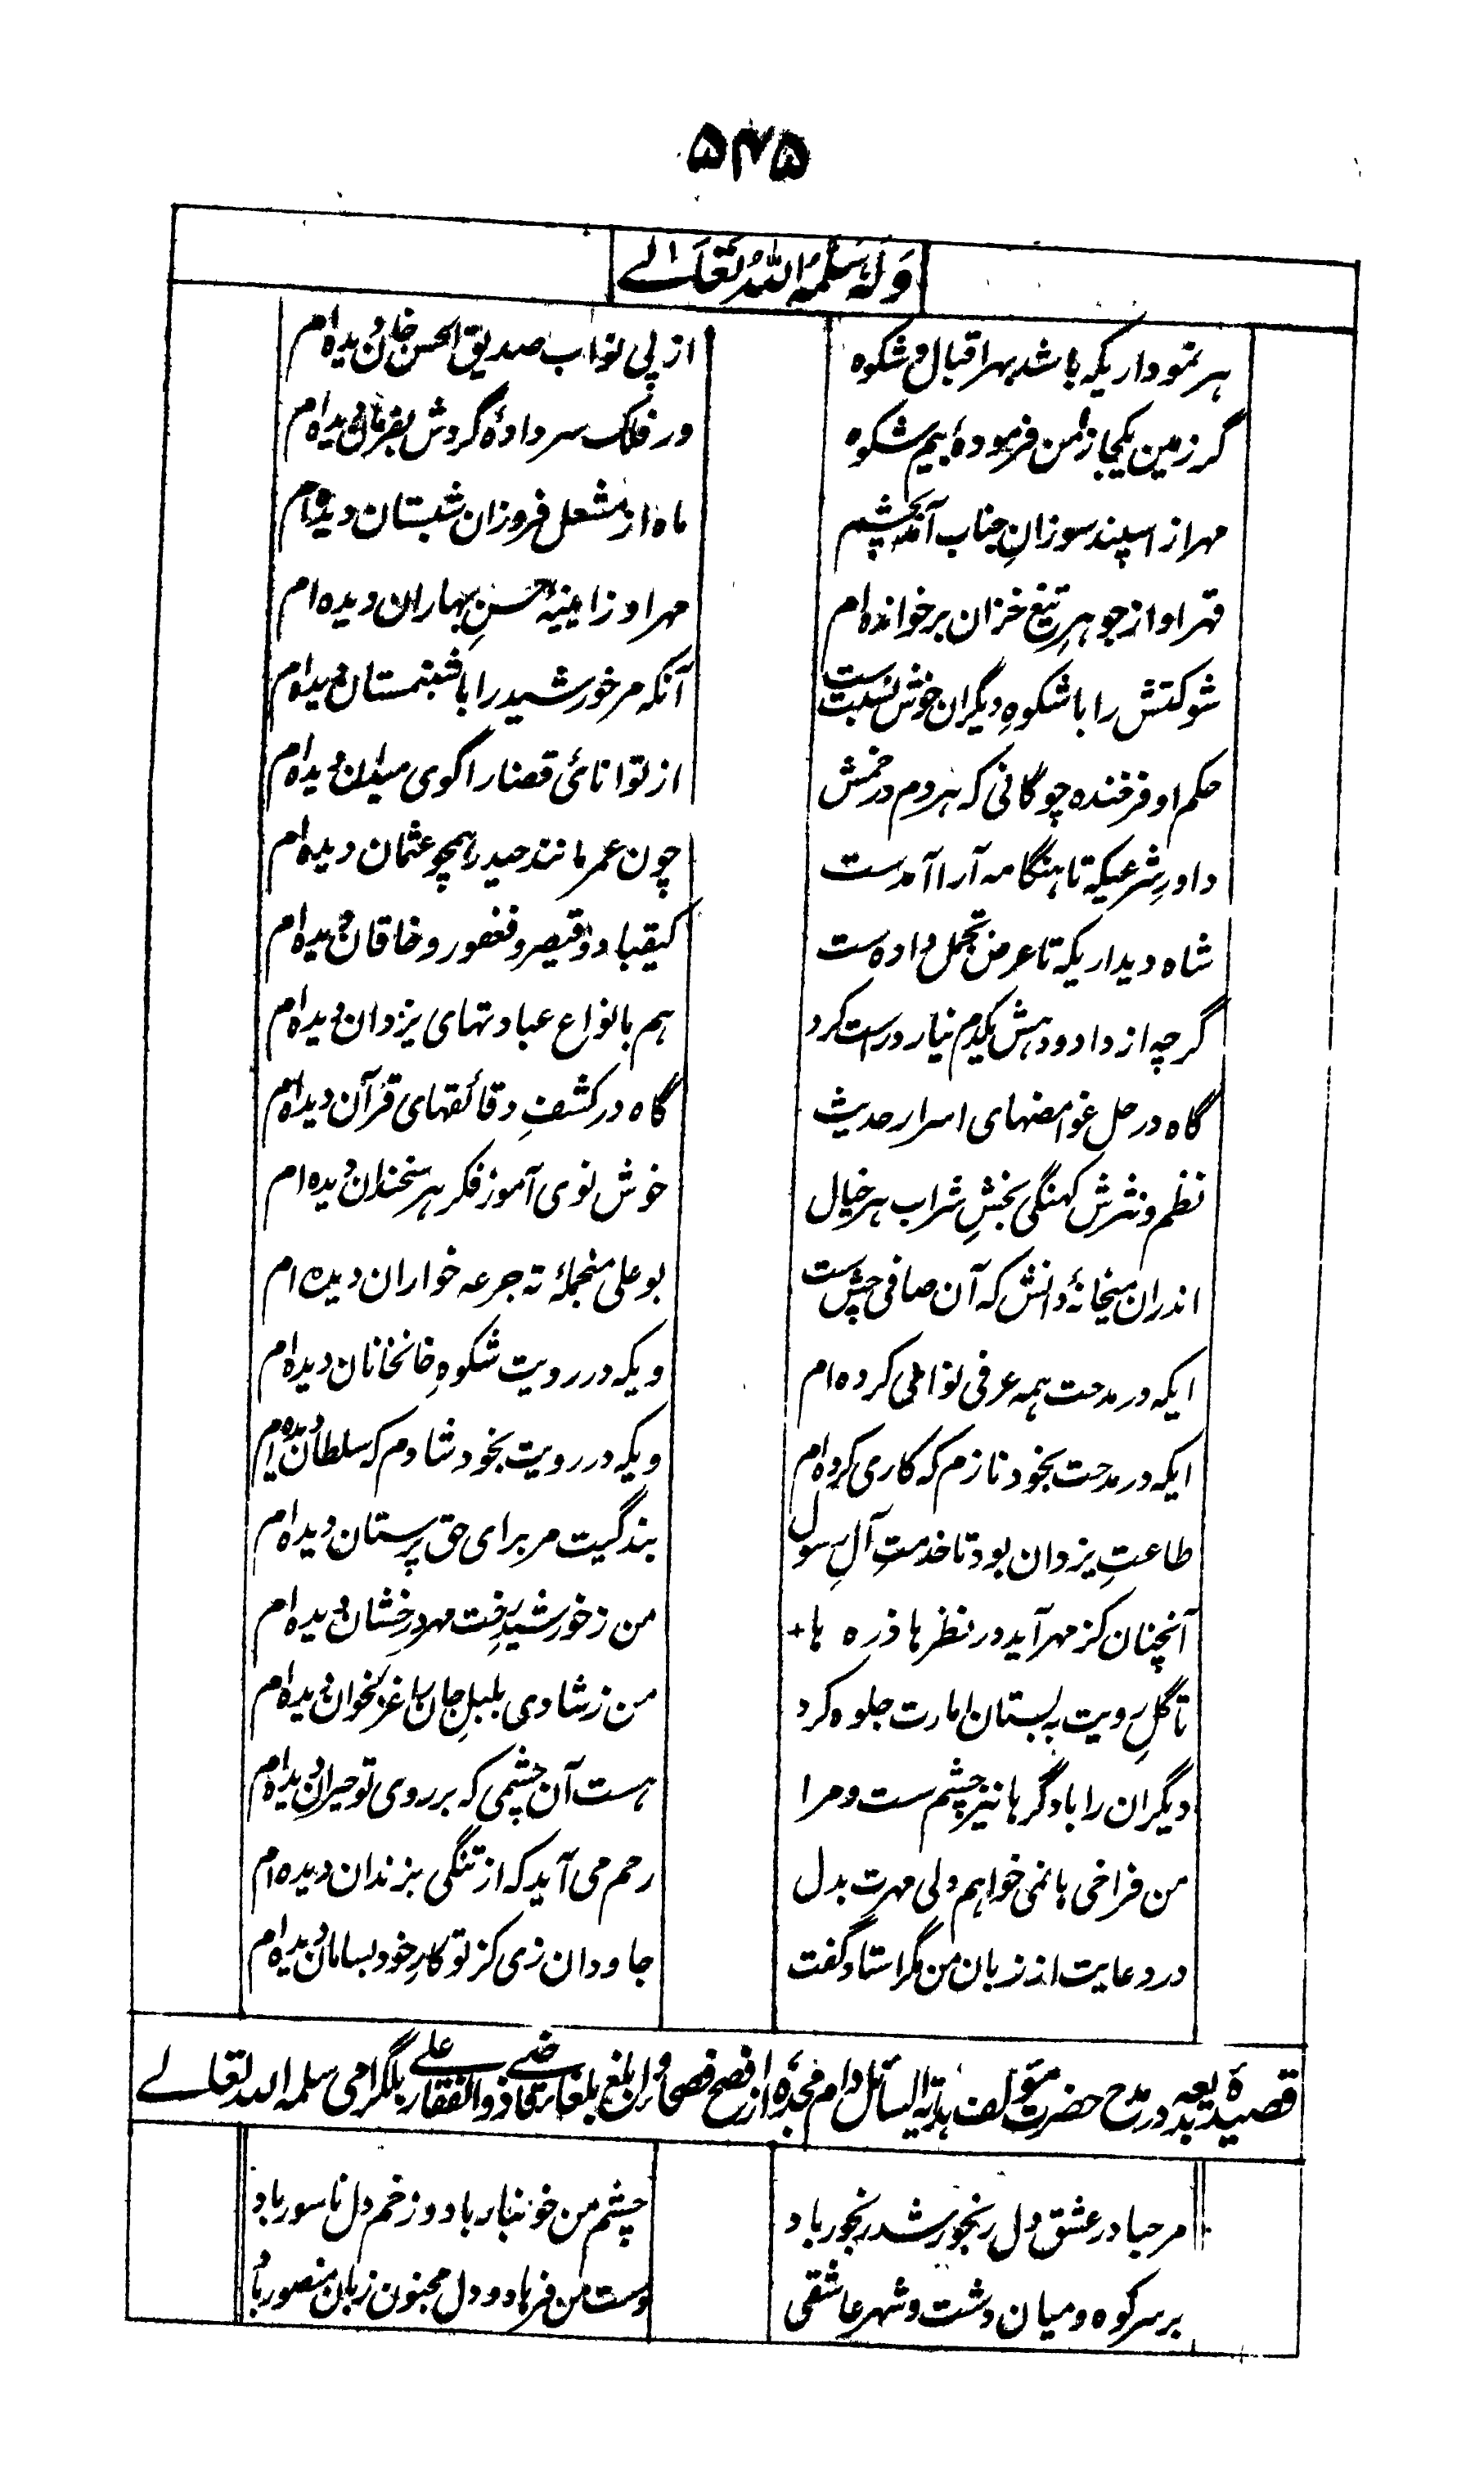 ۵۴۵
وَلَہٗ سَلَّمَہُ اللّٰہُ تَعَالٰے
هر نموداریکه باشد بهر اقبال و شکوه
از پی نواب صدیق الحسن خان دیده ام
گر زمین یکجا ز امن فرمودهٔ بیم شکوه
ور فلک سر دادهٔ گردش بفرمان دیده ام
مهر از اسپند سوزانِ جناب آمد بچشم
ماه از مشعل فروزان شبستان دیده ام
قهر او از جوهرِ تیغ خزان برخوانده ام
مهر او ز ایینهٔ حسنِ بهاران دیده ام
شوکتش را با شکوهِ دیگران خوش نسبت ست
آنکه مر خورشید را با شبنمستان دیده ام
حکم او فرخنده چوگانی که هردم در خمش
از توانائی قضا را گوی میدان دیده ام
داورِ شرعیکه تا هنگامه آرا آمدست
چون عمر مانند حیدر همچو عثمان دیده ام
شاه دیداریکه تا عرض تجمل داده ست
کیقباد و قیصر و فغفور و خاقان دیده ام
گرچه از داد و دهش یکدم نیارد راست کرد
هم بانواع عبادتهای یزدان دیده ام
گاه در حل غوامضهای اسرار حدیث
گاه در کشفِ دقائقهای قرآن دیده ام
نظم و نثرش کهنگی بخشِ شراب هر خیال
خوش نوی آموز فکر هر سخندان دیده ام
اندران میخانهٔ دانش که آن صافی چش ست
بوعلی منجملهٔ ته جرعه خواران دیده ام
ایکه در مدحت همه عرفی نوائی کرده ام
ویکه در رویت شکوهِ خانخانان دیده ام
ایکه در مدحت بخود نازم که کاری کرده ام
ویکه در رویت بخود شادم که سلطان دیده ام
طاعتِ یزدان بود تا خدمتِ آلِ رسول
بندگیت مر برای حق پرستان دیده ام
آنچنان کز مهر آید در نظرها ذره ها+
من ز خورشیدِ رخت مهر درخشان دیده ام
تا گلِ رویت به بستان امارت جلوه کرد
من ز شادی بلبلِ جان را غزلخوان دیده ام
دیگران را با دگرها نیز چشم ست و مرا
هست آن چشمی که بر روی تو حیران دیده ام
من فراخی ها نمی خواهم ولی مهرت بدل
رحم می آید که از تنگی بزندان دیده ام
در دعایت از زبان من مگر استاد گفت
جاودان زی کز تو کارِ خود بسامان دیده ام
قصیدهٔ بدیعه در مدح حضرت مؤلف هدایة السائل دام مجدہ از افصح فصحای دوران ابلغ بلغای قاضی ذوالفقار علی بلگرامی سلمہ اللہ تعالے
مرحبا در عشق دل رنجور شد رنجور باد
چشم من خونبار باد و زخم دل ناسور باد
بر سر کوه و میان دشت و شهر عاشقی
دست من فرهاد و دل مجنون زبان منصور باد